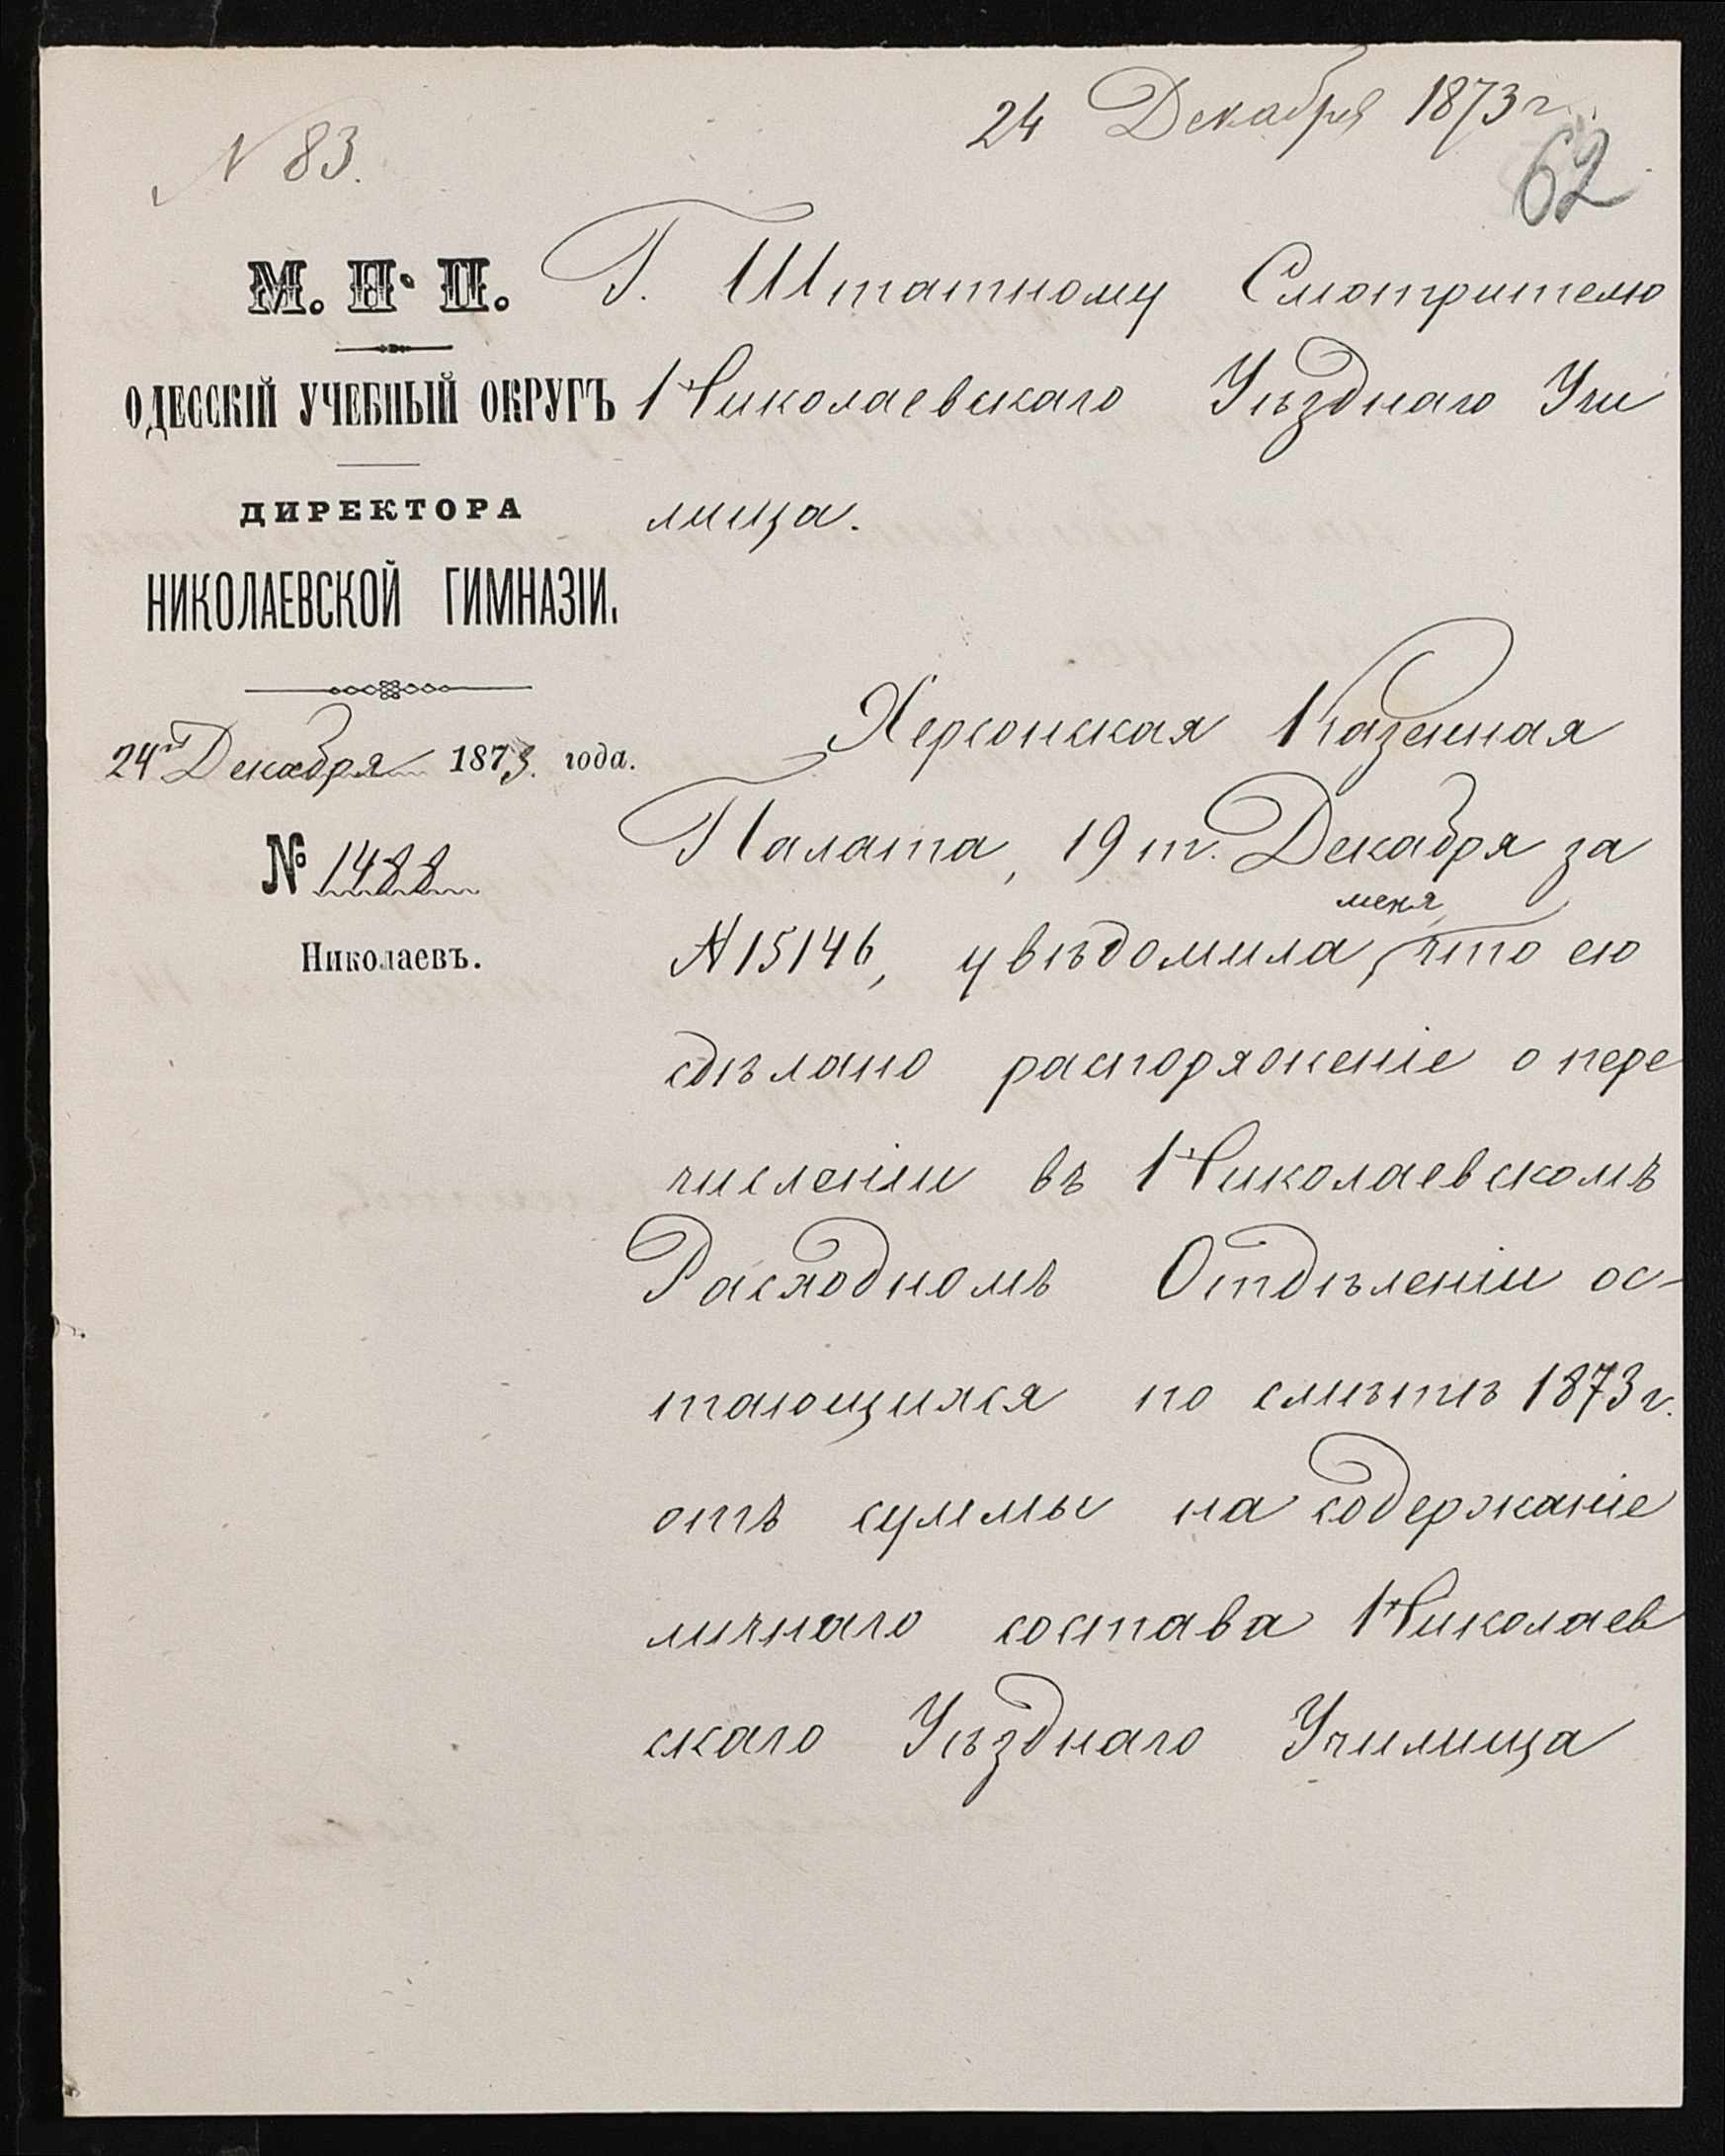 24 Декабря 1873 г.
№ 83.
62
М. Н. П.
ОДЕССКІЙ УЧЕБНЫЙ ОКРУГЪ
ДИРЕКТОРА
НИКОЛАЕВСКОЙ ГИМНАЗІИ.
24го Декабря 1873. года.
№ 1488
Николаевъ.
Г. Штатному Смотрителю
Николаевскаго Уѣзднаго Учи
лища.
Херсонская Казенная
Палата, 19 т. Декабря за
меня
№ 15146, увѣдомила, что ею
сдѣлано распоряженіе о пере
численіи въ Николаевскомъ
Расходномъ Отдѣленіи ос-
тающихся по смѣтѣ 1873 г.
отъ суммы на содержаніе
личнаго состава Николаев
скаго Уѣзднаго Училища